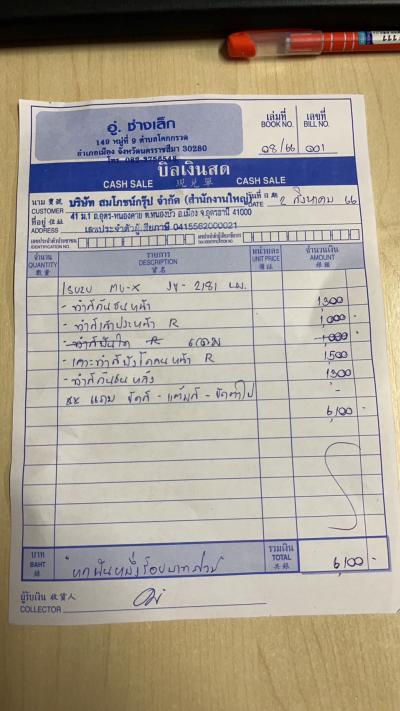 อู่. ช่างเล็ก
149 หมู่ที่ 9 ตำบลโคกกรวด
อำเภอเมือง จังหวัดนครราชสีมา 30280
โทร.
เล่มที่ เลขที่
BOOK NO. BILL NO.
08/66 001
บิลเงินสด
CASH SALE 現兌單 CASH SALE
นาม บริษัท สมโภชน์กรุ๊ป จำกัด (สำนักงานใหญ่) วันที่ 2 สิงหาคม 66
CUSTOMER DATE
ที่อยู่ 41 ม.1 ถ.อุดร-หนองคาย ต.หนองบัว อ.เมือง จ.อุดรธานี 41000
ADDRESS เลขประจำตัวผู้เสียภาษี 0415562000021
เลขประจำตัวประชาชน
IDENTIFICATION NO.
จำนวน รายการ หน่วยละ จำนวนเงิน
QUANTITY DESCRIPTION UNIT PRICE AMOUNT
數量 貨名 備註 銀碼
ISUZU MU-X 2181
- ทำสีกันชนหน้า 1,300
- ทำสี ประหน้า R 1,000 -
R 1,000 -
- เคาะทำสีบังโคลนหน้า R 1,500
- ทำสีกันชนหลัง 1,300
แถม ขัดสี - แต้มสี -
6,100 -
บาท รวมเงิน
BAHT TOTAL 6,100 -
銀 共銀
"หกพันหนึ่งร้อยบาทถ้วน"
ผู้รับเงิน 收貨人
COLLECTOR